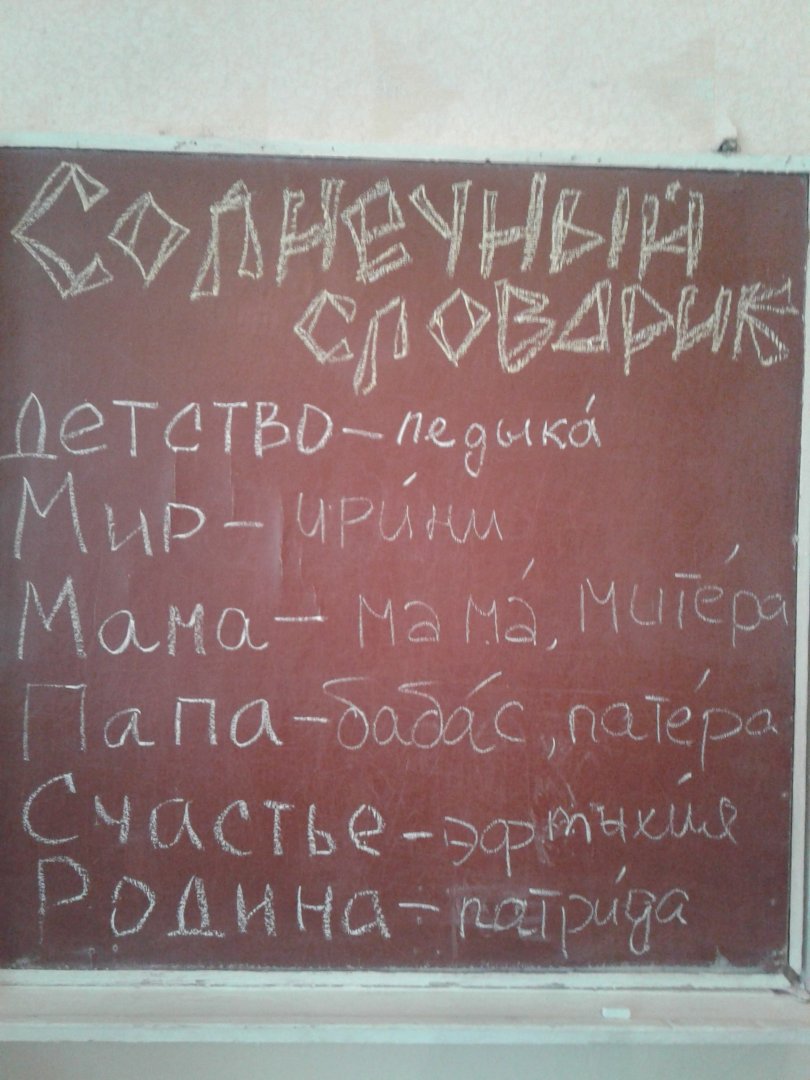 Солнечный
словарик
Детство – педыка́
Мир – ири́ни
Мама – мама́, мите́ра
Папа – баба́с, пате́ра
Счастье – эфтыхи́я
Родина – патри́да